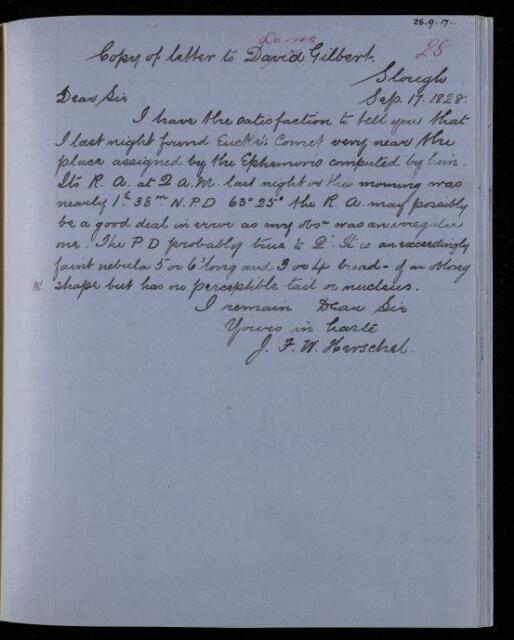 28.9.17.
Davies
28
Copy of letter to David Gilbert.
Slough
Dear Sir Sep. 17. 1828.
I have the satisfaction to tell you that
I last night found Encke's Comet very near the
place assigned by the Ephemeris computed by him.
Its R. A. at 2 A.M. last night or this morning was
nearly 1h 38m N.P.D 63° 25' the R. A. may possibly
be a good deal in error as my obsn was an irregular
one. The P.D probably true to 2'. It is an exceedingly
faint nebula 5 or 6' long and 3 or 4 broad - of an oblong
shape but has no perceptible tail or nucleus.
I remain Dear Sir
Yours in haste
J. F. W. Herschel.